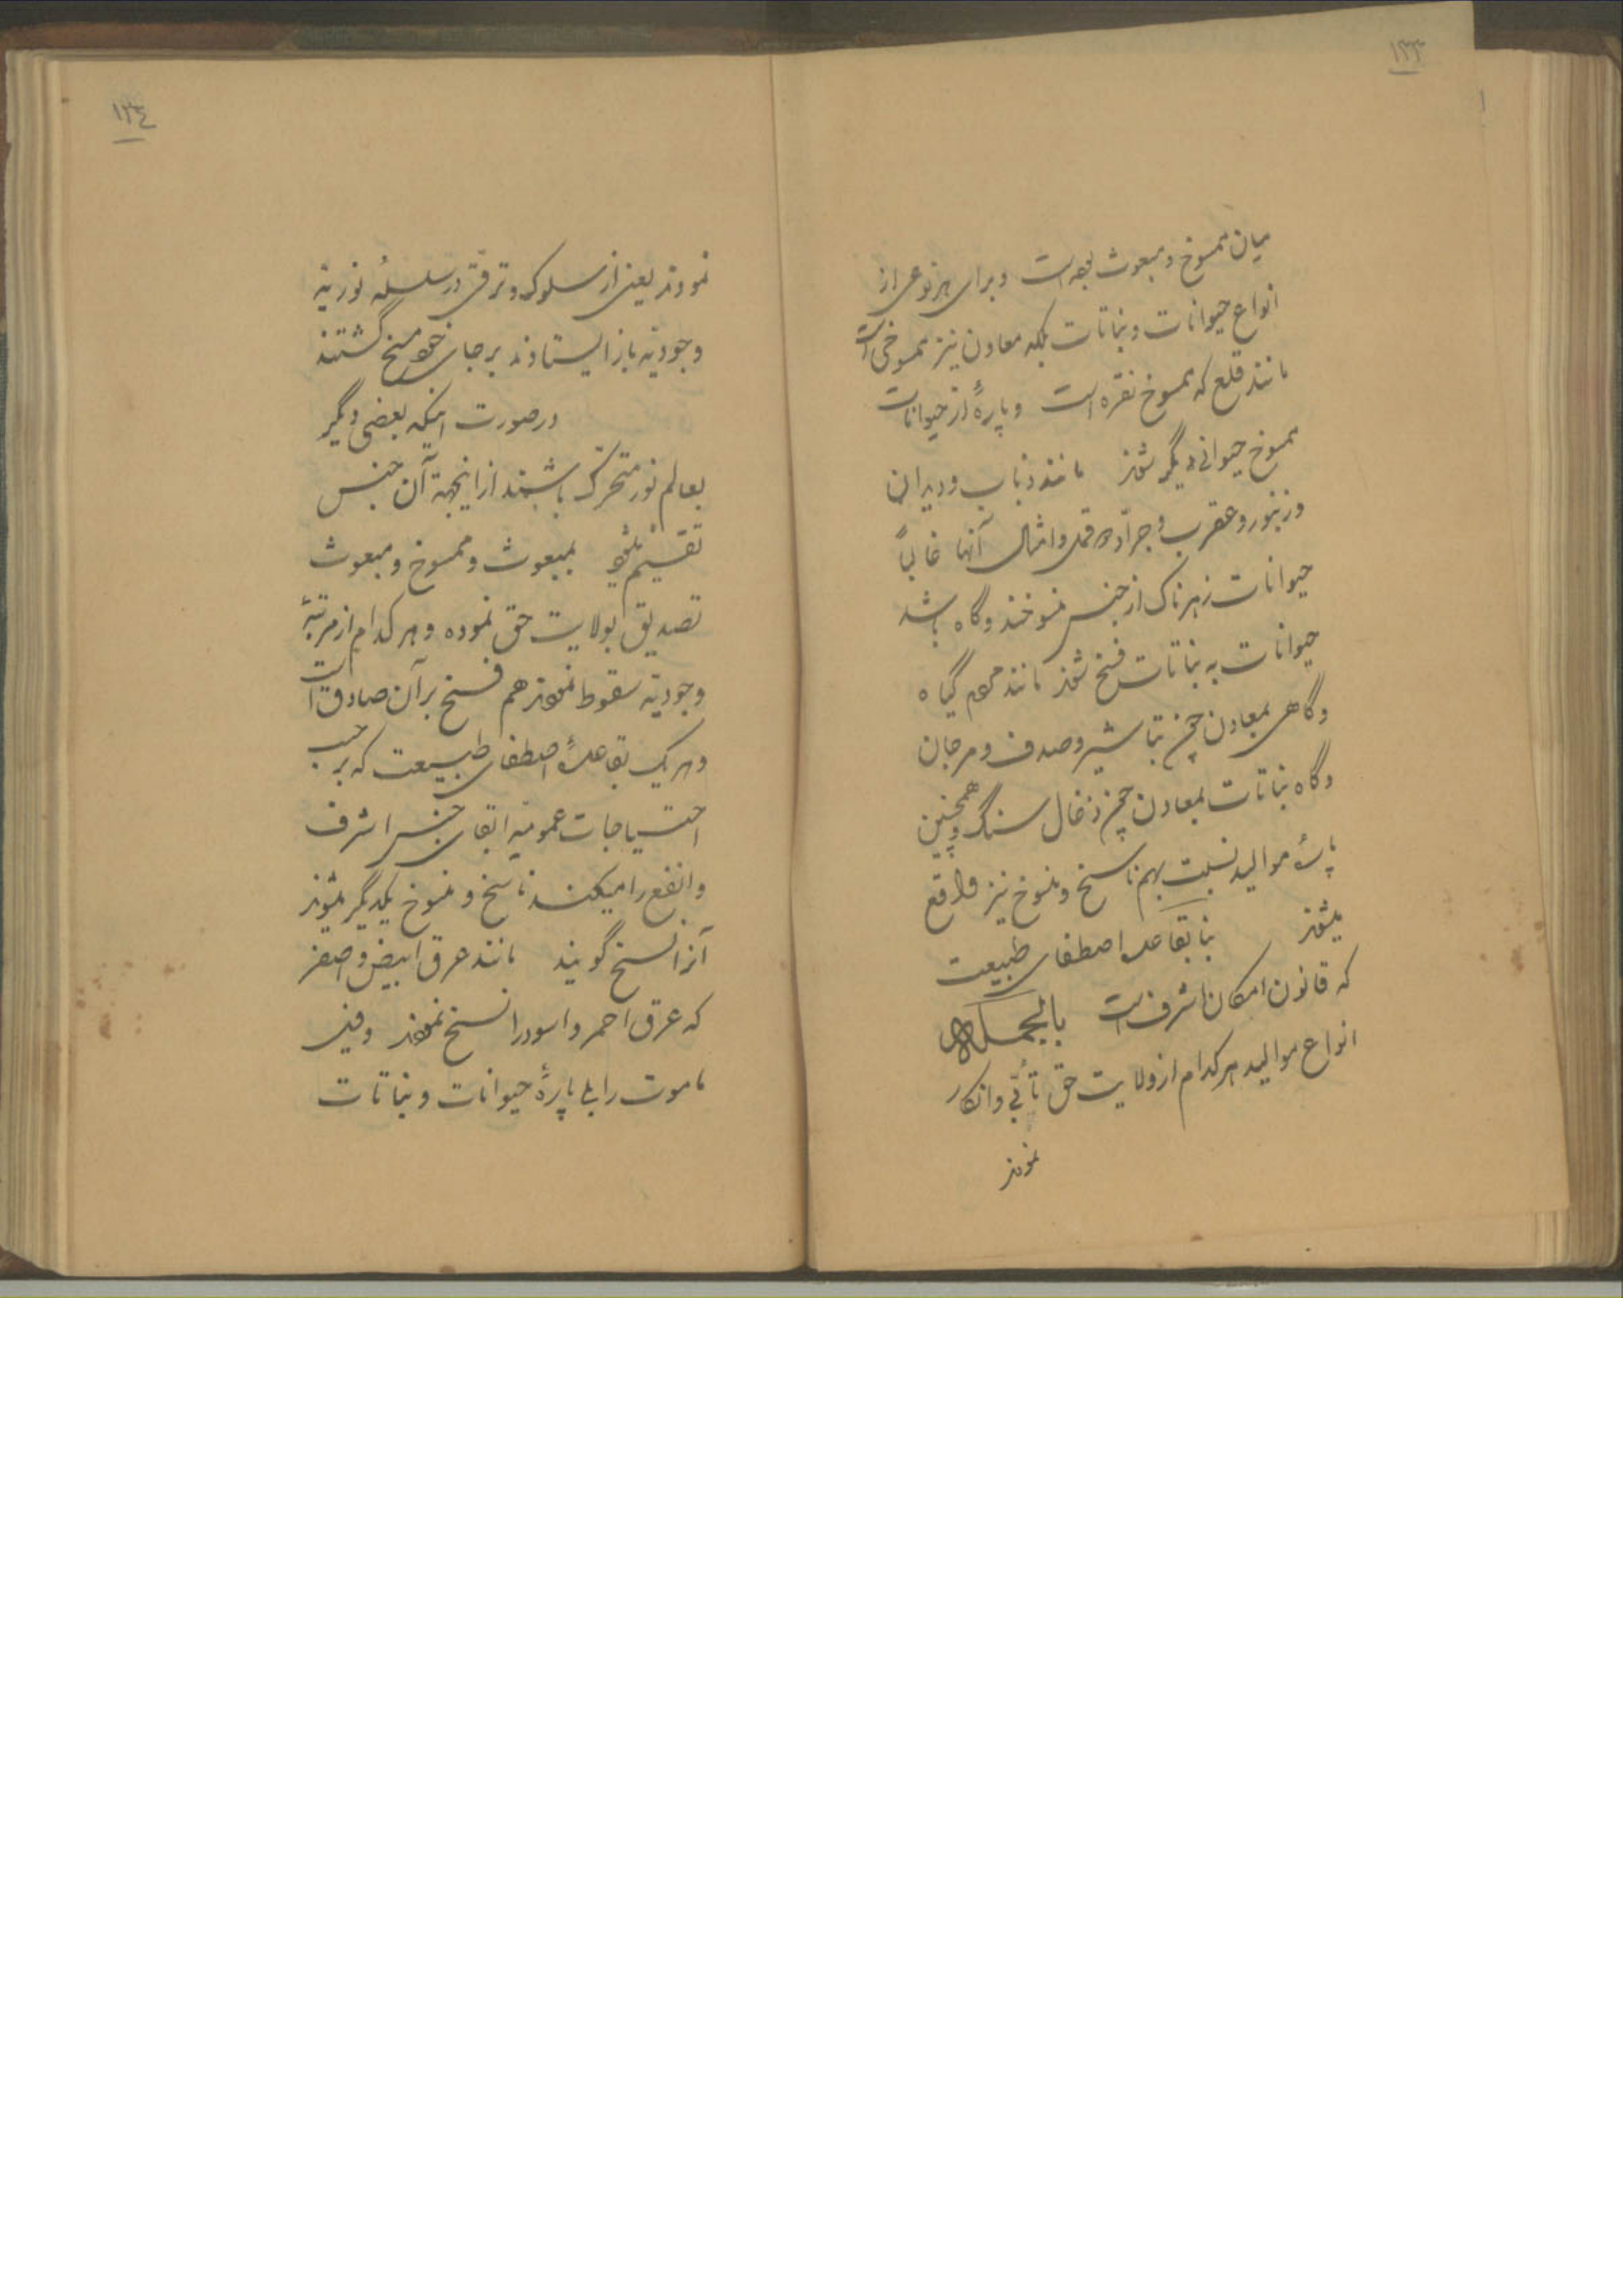 ۱۳۳
میان ممسوخ و مبعوث بوده است و برای هر نوعی از
انواع حیوانات و نباتات بلکه معادن نیز ممسوخی است
مانند قلع که ممسوخ نقره است و پارهٔ از حیوانات
ممسوخ حیوانی دیگر شوند مانند ذباب و دیدان
و زنبور و عقرب و جرّاده و قمل و امثال آنها غالباً
حیوانات زهرناک از جنس منسوخند و گاه باشد
حیوانات به نباتات فسخ شوند مانند مردم گیاه
و گاهی بمعادن چون تباشیر و صدف و مرجان
و گاه نباتات بمعادن چون ذغال سنگ و همچنین
پارهٔ موالید نسبت بهم ناسخ و منسوخ نیز واقع
میشوند بنا بقاعده اصطفای طبیعت
که قانون امکان اشرف است بالجمله
انواع موالید هر کدام از ولایت حق تأبّی و انکار
نمودند
۱۳٤
نمودند یعنی از سلوک و ترقّی در سلسلهٔ نوریّه
وجودیّه باز ایستادند بر جای خود مسخ گشتند
در صورت اینکه بعضی دیگر
بعالم نور متحرّک باشند از اینجهة آن جنس
تقسیم شود بمبعوث و ممسوخ و مبعوث
تصدیق بولایت حق نموده و هر کدام از مرتبهٔ
وجودیّه سقوط نمودند هم فسخ بر آن صادق است
و هر یک بقاعدهٔ اصطفای طبیعت که بر حسب
احتیاجات عمومیّه ابقای جنس اشرف
و انفع را میکند ناسخ و منسوخ یکدیگر میشوند
آنرا نسخ گویند مانند عرق ابیض و اصفر
که عرق احمر و اسود را نسخ نمودند و فیل
ماموت را بلی پارهٔ حیوانات و نباتات